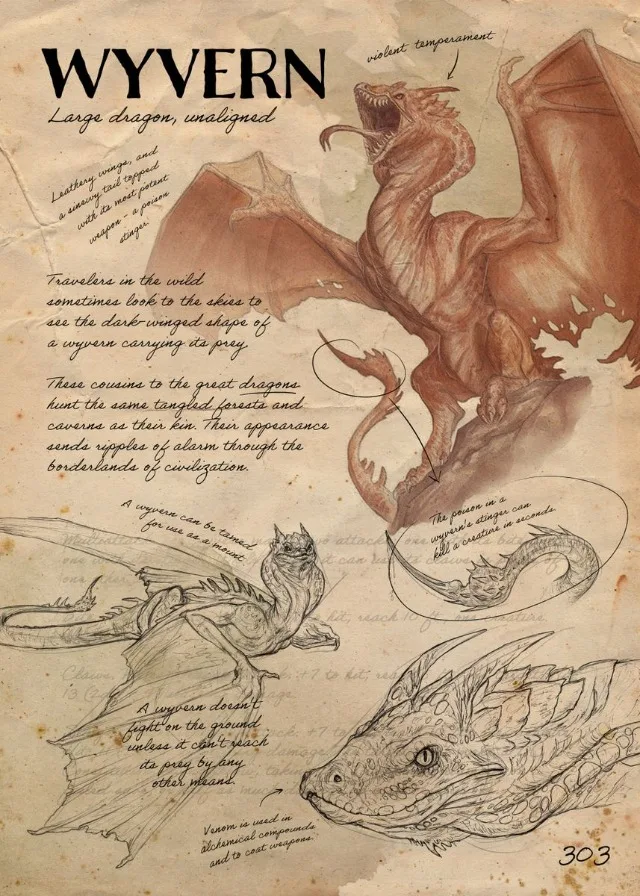 WYVERN
Large dragon, unaligned
violent temperament
Leathery wings, and
a sinewy tail topped
with its most potent
weapon - a poison
stinger.
Travelers in the wild
sometimes look to the skies to
see the dark-winged shape of
a wyvern carrying its prey.
These cousins to the great dragons
hunt the same tangled forests and
caverns as their kin. Their appearance
sends ripples of alarm through the
borderlands of civilization.
A wyvern can be tamed
for use as a mount.
The poison in a
wyvern's stinger can
kill a creature in seconds.
to hit, reach 10 ft., one creature.
Claws. +7 to hit,
A wyvern doesn't
fight on the ground
unless it can't reach
its prey by any
other means.
Venom is used in
alchemical compounds
and to coat weapons.
303